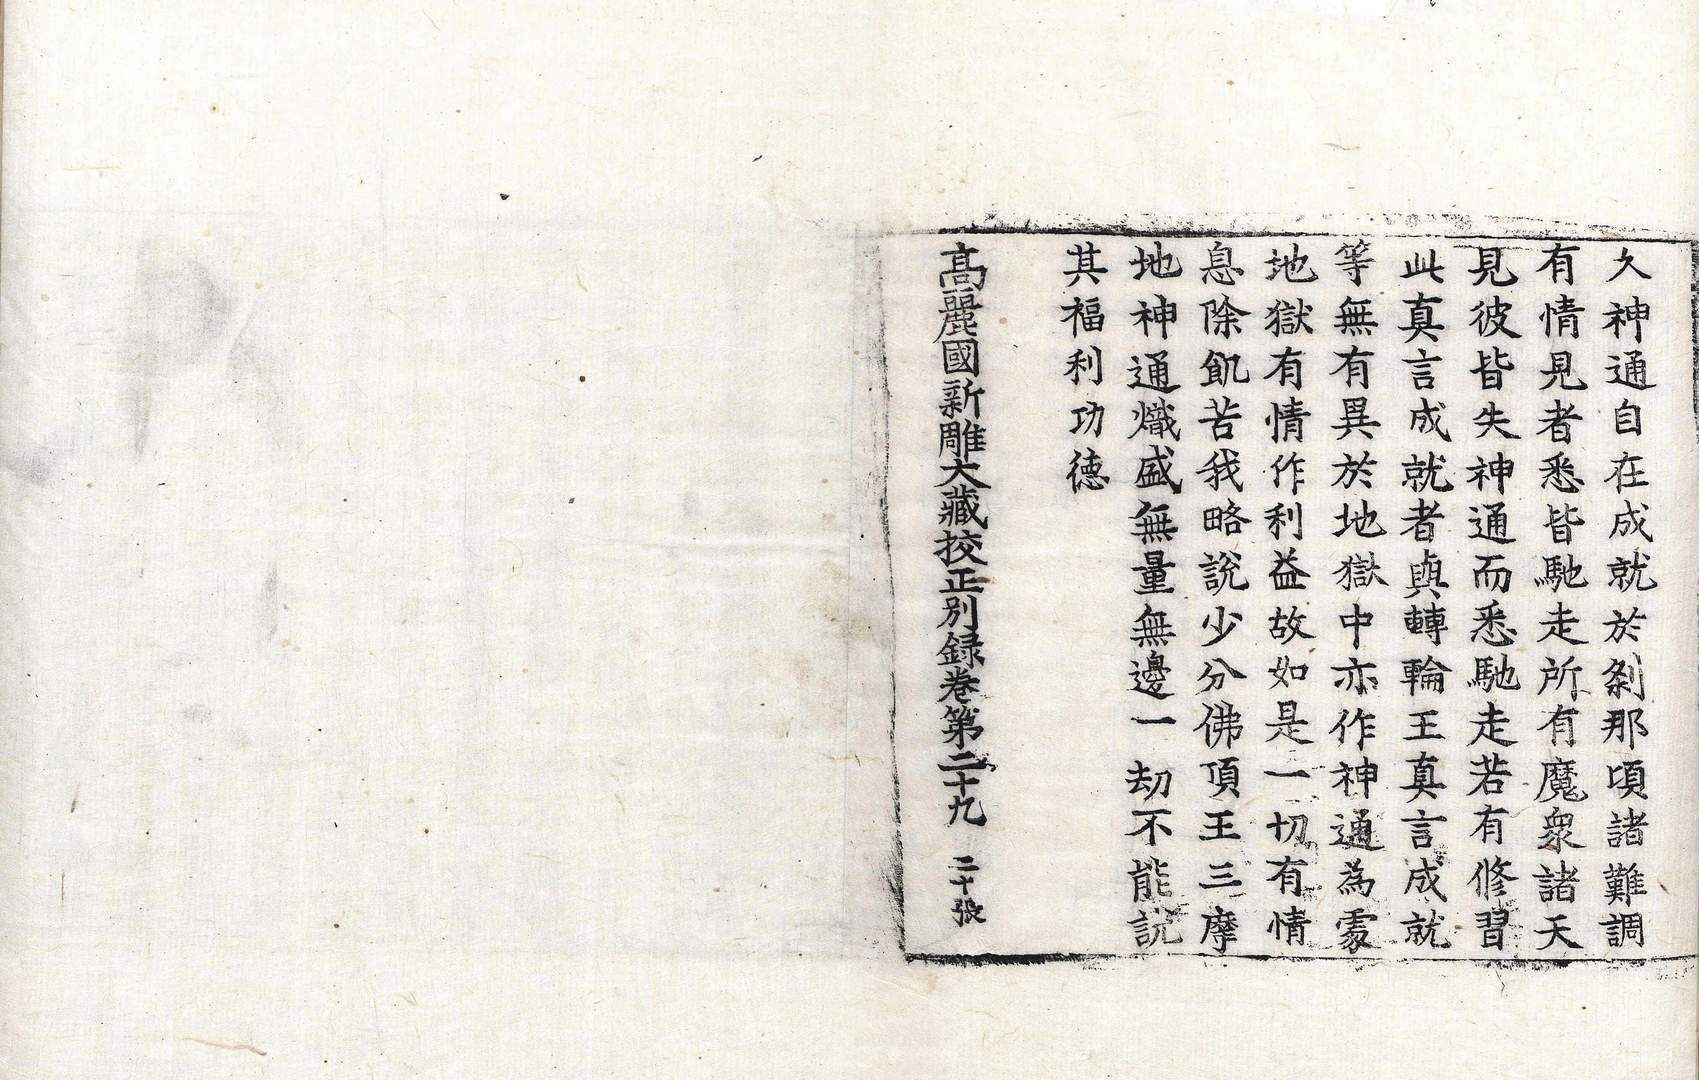 久神通自在成就於剎那頃諸難調
有情見者悉皆馳走所有魔衆諸天
見彼皆失神通而悉馳走若有修習
此真言成就者與轉輪王真言成就
等無有異於地獄中亦作神通為處
地獄有情作利益故如是一切有情
息除飢苦我略說少分佛頂王三摩
地神通熾盛無量無邊一劫不能說
其福利功德
高麗國新雕大藏挍正別録卷第二十九 二十張